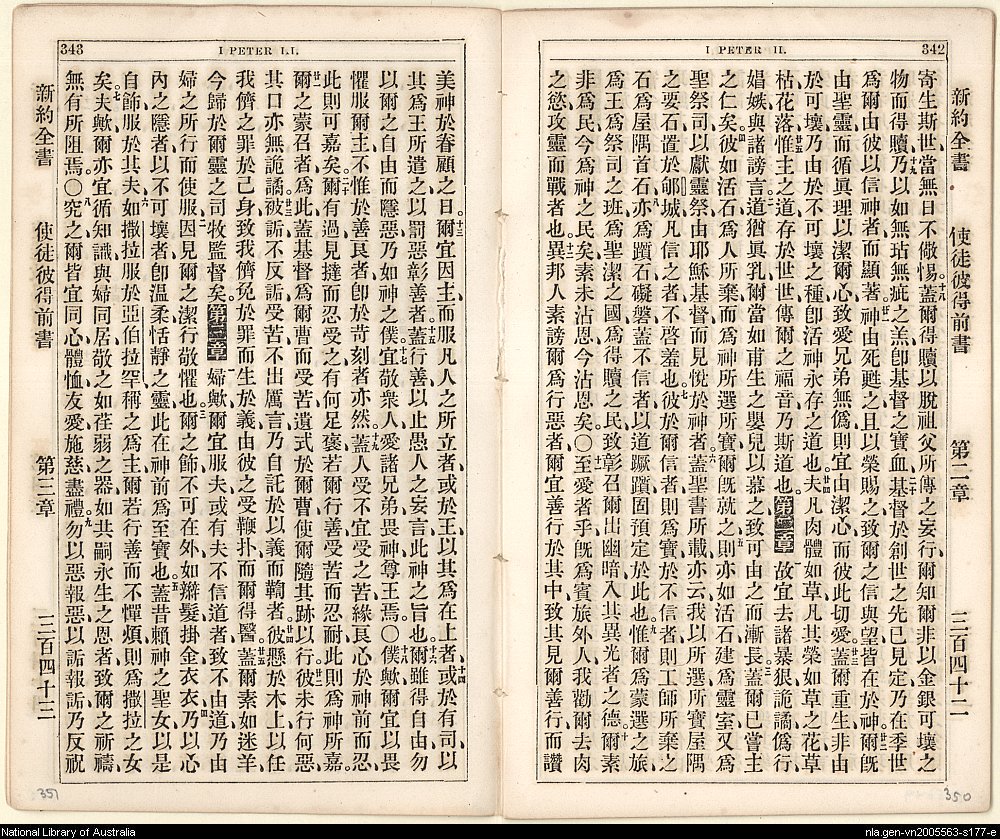 342
I PETER II.
新約全書 使徒彼得前書 第二章 三百四十二
寄生斯世、當無日不儆惕。十八蓋爾得贖以脫祖父所傳之妄行、爾知爾非以金銀可壞之
物而得贖、十九乃以如無玷無疵之羔、卽基督之寶血。二十基督於創世之先已見定、乃在季世
爲爾爾由彼以信神者而顯著。廿一神由死甦之、且以榮賜之、致爾之信與望、皆在於神。廿二爾旣
由聖靈而循眞理、以潔爾心、致愛兄弟無僞、則宜由潔心而彼此切愛。廿三蓋爾重生、非由
於可壞、乃由於不可壞之種、卽活神永存之道也。廿四夫凡肉體如草、凡其榮如草之花、草
枯花落、廿五惟主之道、存於世世、傳爾之福音、乃斯道也。第二章 一故宜去諸暴狠詭譎僞行、
娼嫉與諸謗言、二道猶眞乳、爾當如甫生之嬰兒以慕之、致可由之而漸長、三蓋爾已嘗主
之仁矣。四彼如活石、爲人所棄、而爲神所選所寶、爾旣就之、五則亦如活石、建爲靈室、又爲
聖祭司、以獻靈祭、由耶穌基督而見悅於神者、六蓋聖書所載亦云、我以所選所寶屋隅
之要石、置於郇城、凡信之者、不啓羞也。七彼於爾信者、則爲寶、於不信者、則工師所棄之
石、爲屋隅首石、八亦爲躓石礙磐、蓋不信者以道蹶躓、固預定於此也。九惟爾爲蒙選之族、
爲王爲祭司之班、爲聖潔之國、爲得贖之民、致彰召爾出幽暗、入其異光者之德。十爾素
非爲民、今爲神之民矣、素未沾恩、今沾恩矣。〇十一至愛者乎、旣爲賓旅外人、我勸爾去肉
之慾、攻靈而戰者也。十二異邦人素謗爾爲行惡者、爾宜善行於其中、致其見爾善行、而讚
350
343
I PETER I.I.
美神於眷顧之日。十三爾宜因主、而服凡人之所立者、或於王、以其爲在上者、十四或於有司、以
其爲王所遣之、以罰惡彰善者。十五蓋行善以止愚人之妄言、此神之旨也。十六爾雖得自由、勿
以爾之自由而隱惡、乃如神之僕。十七宜敬衆人、愛諸兄弟、畏神、尊王焉。〇十八僕歟、爾宜以畏
懼服爾主、不惟於善良者、卽於苛刻者亦然。十九蓋人受不宜受之苦、緣良心於神前而忍
此、則可嘉矣。二十爾有過見撻而忍受之、有何足褒、若爾行善受苦而忍耐、此則爲神所嘉。
廿一爾之蒙召者爲此、蓋基督爲爾曹而受苦、遺式於爾曹、使爾隨其跡以行。廿二彼未行何惡、
其口亦無詭譎、廿三被詬不反詬、受苦不出厲言、乃自託於以義而鞫者。廿四彼懸於木上、以任
我儕之罪於己身、致我儕免於罪而生於義、由彼之受鞭扑、而爾得醫。廿五蓋爾素如迷羊、
今歸於爾靈之司牧監督矣。第三章 一婦歟、爾宜服夫、或有夫不信道者、致不由道、乃由
婦之所行而使服、二因見爾之潔行敬懼也。三爾之飾不可在外、如辮髮掛金衣衣、四乃以心
內之隱者、以不可壞者、卽溫柔恬靜之靈、此在神前爲至寶也。五蓋昔賴神之聖女以是
自飾、服於其夫、六如撒拉服於亞伯拉罕、稱之爲主、爾若行善而不憚煩、則爲撒拉之女
矣。七夫歟、爾亦宜循知識與婦同居、敬之如荏弱之器、如共嗣永生之恩者、致爾之祈禱
無有所阻焉。〇八究之爾皆宜同心、體恤、友愛、施慈、盡禮、九勿以惡報惡、以詬報詬、乃反祝
新約全書 使徒彼得前書 第三章 三百四十三
351
National Library of Australia
nla.gen-vn2005563-s177-e